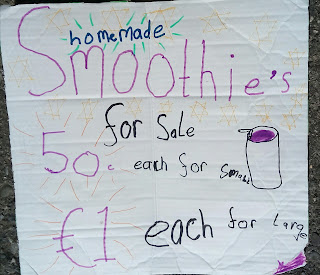 homemade
Smoothie's
for Sale
50c each for small
€1 each for Large